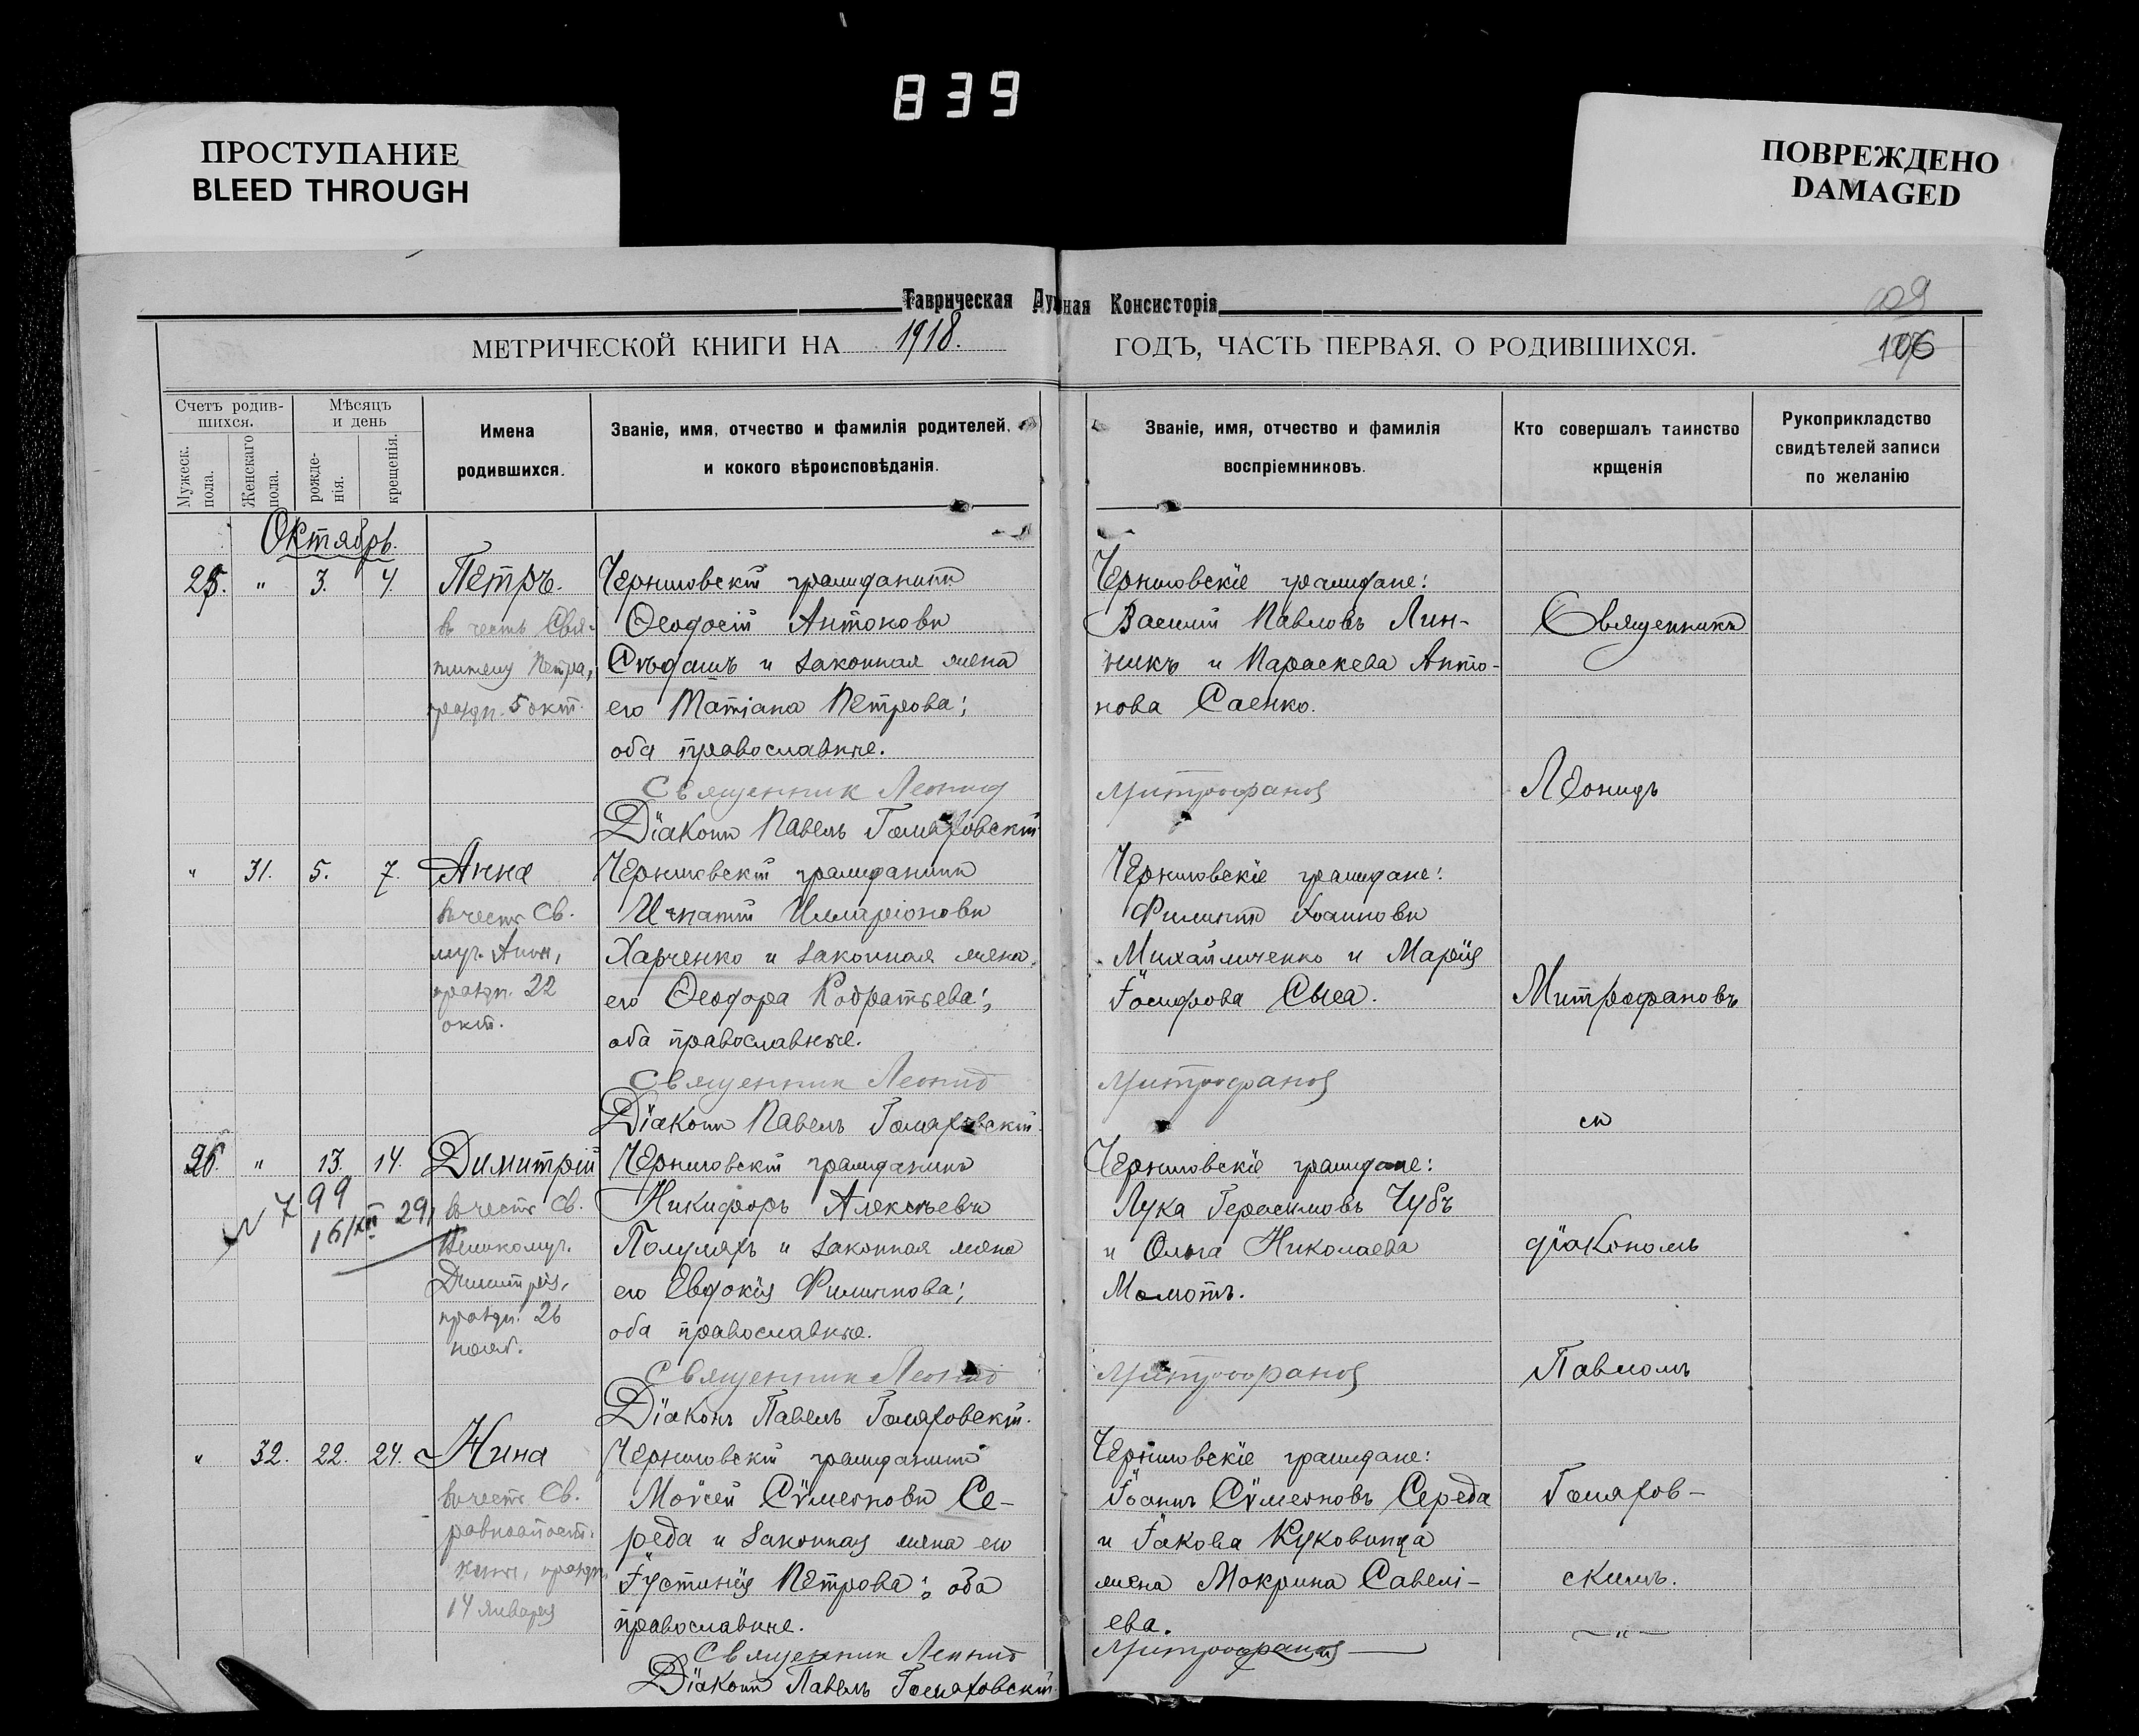 839
ПРОСТУПАНИЕ
BLEED THROUGH
ПОВРЕЖДЕНО
DAMAGED
Таврическая Духовная Консисторія
109
106
МЕТРИЧЕСКОЙ КНИГИ НА 1918. ГОДЪ, ЧАСТЬ ПЕРВАЯ, О РОДИВШИХСЯ.
Счетъ родив-
шихся.
Мужеск.
пола.
Женскаго
пола.
Мѣсяцъ
и день
рожде-
нія.
крещенія.
Имена
родившихся.
Званіе, имя, отчество и фамилія родителей,
и кокого вѣроисповѣданія.
Званіе, имя, отчество и фамилія
воспріемниковъ.
Кто совершалъ таинство
крщенія
Рукоприкладство
свидѣтелей записи
по желанію
Октябрь.
25. " 3. 4.
Петръ.
въ честь Свя-
тителя Петра,
праздн. 5 окт.
Черниговскій гражданинъ
Ѳеодосій Антоновъ
Сѣдашъ и законная жена
его Татіана Петрова;
оба православные.
Священник Леонид
Діаконъ Павелъ Гамаховскій
Черниговскіе граждане:
Василій Павловъ Лин-
никъ и Параскева Анто-
нова Саенко.
Митрофанов
Священникъ
Леонидъ
" 31. 5. 7.
Анна
въ честь Св.
муч. Анны,
праздн. 22
окт.
Черниговскій гражданинъ
Игнатій Илларіоновъ
Харченко и законная жена
его Ѳеодора Кодратьева;
оба православные.
Священник Леонид
Діаконъ Павелъ Гамаховскій
Черниговскіе граждане:
Филиппъ Іоанновъ
Михайличенко и Марія
Іосифова Сыса.
Митрофанов
Митрофановъ
съ
26. " 13. 14.
N 799
16/XII 29,
Димитрій
въ честь Св.
Великомуч.
Димитрія,
праздн. 26
Черниговскій гражданинъ
Никифоръ Алексѣевъ
и законная жена
его Евдокія Филиппова;
оба православные.
Священник Леонид
Діаконъ Павелъ Гамаховскій.
Черниговскіе граждане:
Лука Герасимовъ Чубъ
и Ольга Николаева
Мамотъ.
Митрофанов
діакономъ
Павломъ
" 32. 22. 24.
Нина
въ честь Св.
равноапост.
Нины, праздн.
14 января
Черниговскій гражданинъ
Моѵсей Сѵмеоновъ Се-
реда и законная жена его
Іустинія Петрова; оба
православные.
Священник Леонид
Діаконъ Павелъ Гамаховскій.
Черниговскіе граждане:
Іоаннъ Сѵмеоновъ Середа
и Іакова Куковинца
жена Макрина Савелі-
ева.
Митрофанов
Гамахов-
скимъ.
— " —